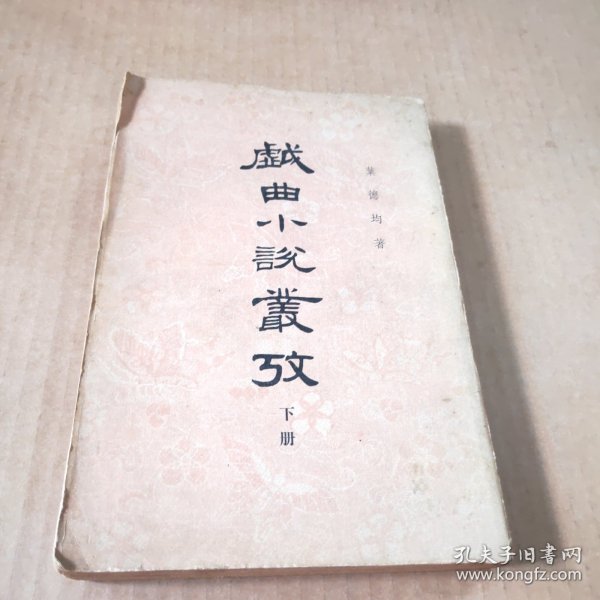 戲曲小説叢攷
下册
葉德均著
孔夫子旧書网
www.kongfz.com